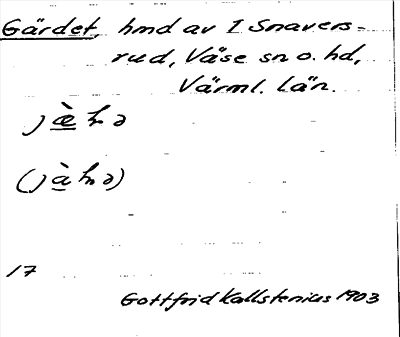 Gärdet, hmd av I Snavers-
rud, Väse sn o. hd,
Värml. län.
17
Gottfrid Kallstenius 1903